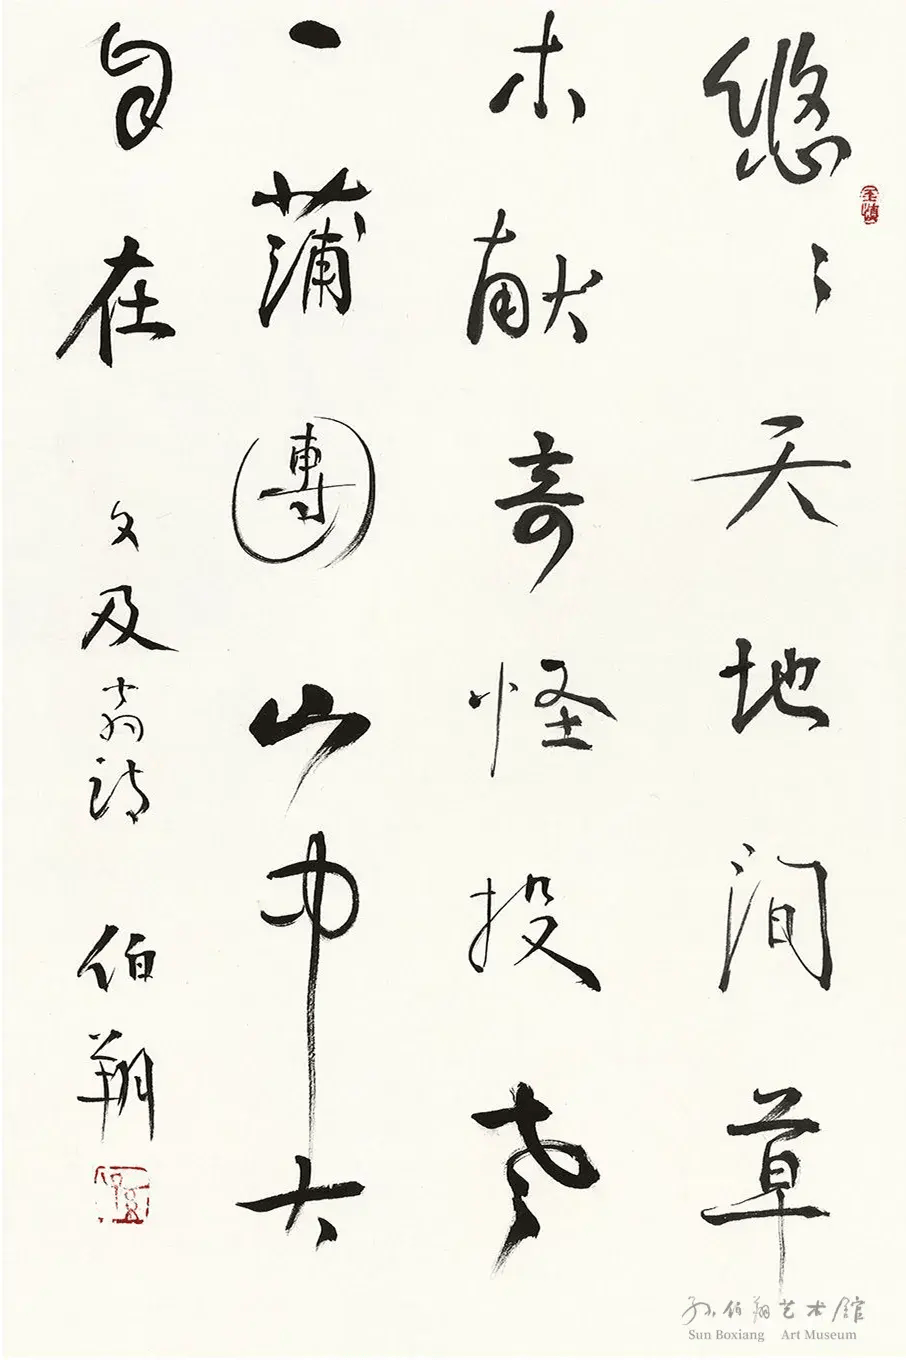 悠〻天地间草
木献奇怪投老
一蒲團山中大
自在
文及翁詩
伯翔
孙伯翔艺术館
Sun Boxiang Art Museum